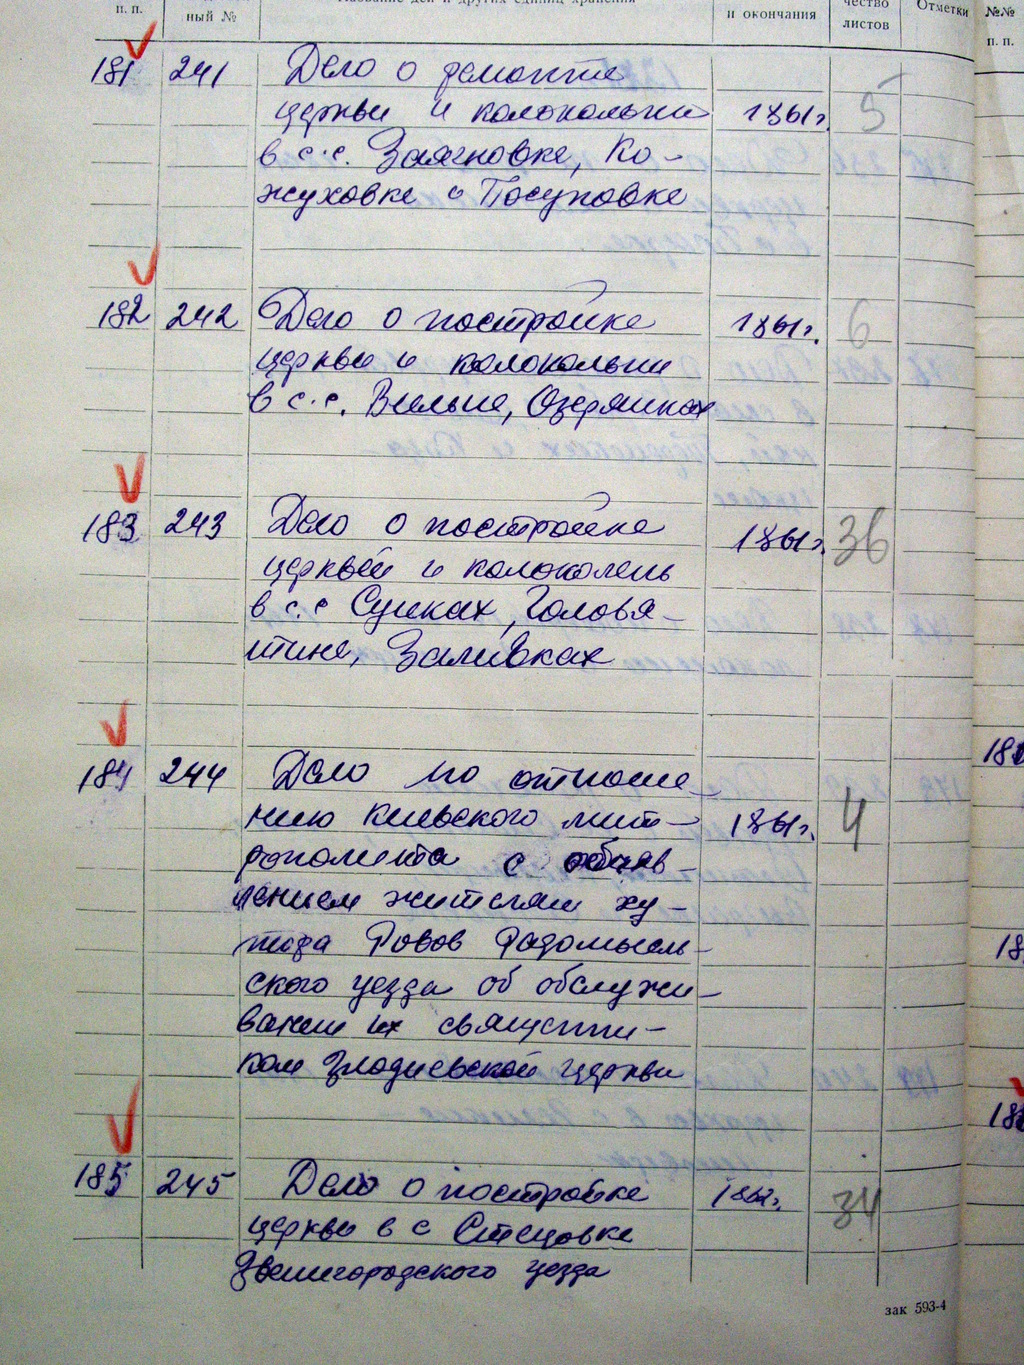 п. п.
ный №
Название дел и других единиц хранения
и окончания
чество
листов
Отметки
№№
п. п.
181 241 Дело о ремонте
церкви и колокольни 1861г. 5
в с.с. Ко-
жуховке и
182 242 Дело о постройке 1861г. 6
церкви и колокольни
в с.с. Вильне, Озерянках
183 243 Дело о постройке 1861г. 36
церквей и колоколень
в с.с Сунках, Головя-
тине, Заливках
184 244 Дело по отноше-
нию Киевского мит- 1861г. 4
рополита с объяв-
лением жителям ху-
тора Ровов Радомысль-
ского уезда об обслужи-
вании их священни-
ком Злодиевской церкви
185 245 Дело о постройке 34
церкви в с Стецовке
Звенигородского уезда
зак 593-4